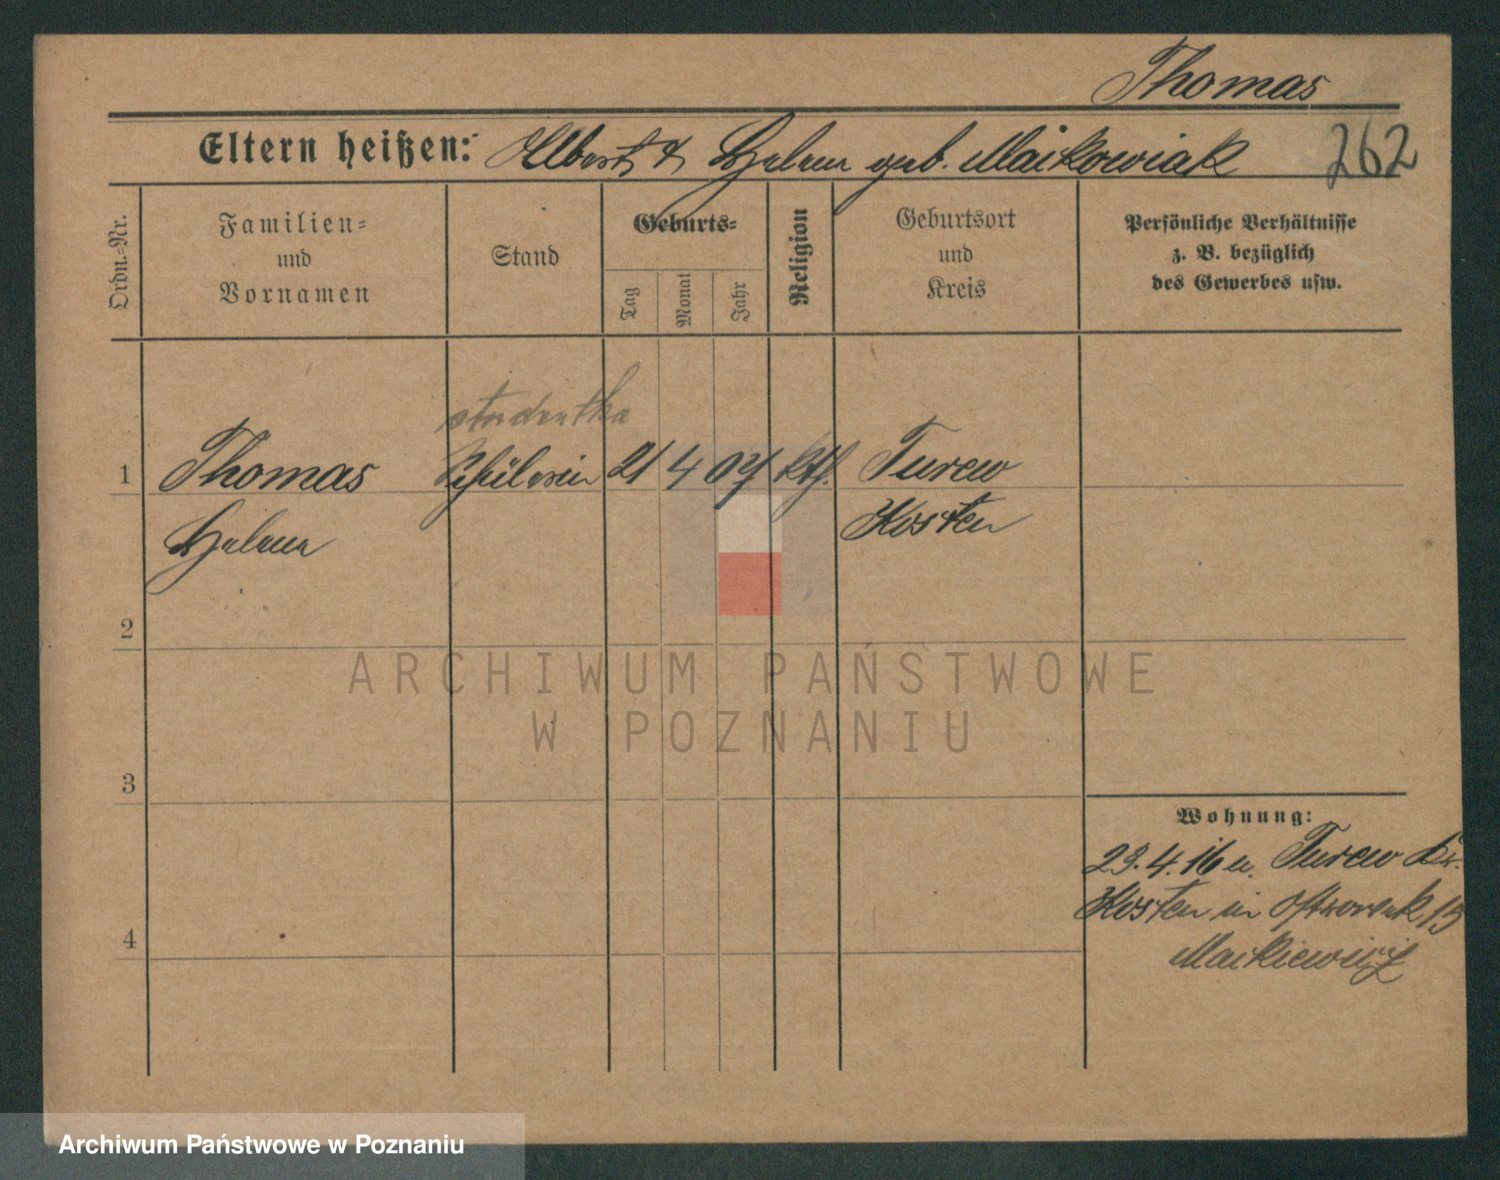 Thomas
Eltern heißen: Albert & Helene geb. Maikowiak
262
Ordn.-Nr.
Familien-
und
Vornamen
Stand
Geburts-
Tag
Monat
Jahr
Religion
Geburtsort
und
Kreis
Persönliche Verhältnisse
z. B. bezüglich
des Gewerbes usw.
studentka
1 Thomas Schülerin 21 4 07 kth. Turew
Helena Kosten
2
3
4
Wohnung:
23. 4. 16 u. Turew Kr.
Kosten in 15
Maikiewicz
ARCHIWUM PAŃSTWOWE
W POZNANIU
Archiwum Państwowe w Poznaniu